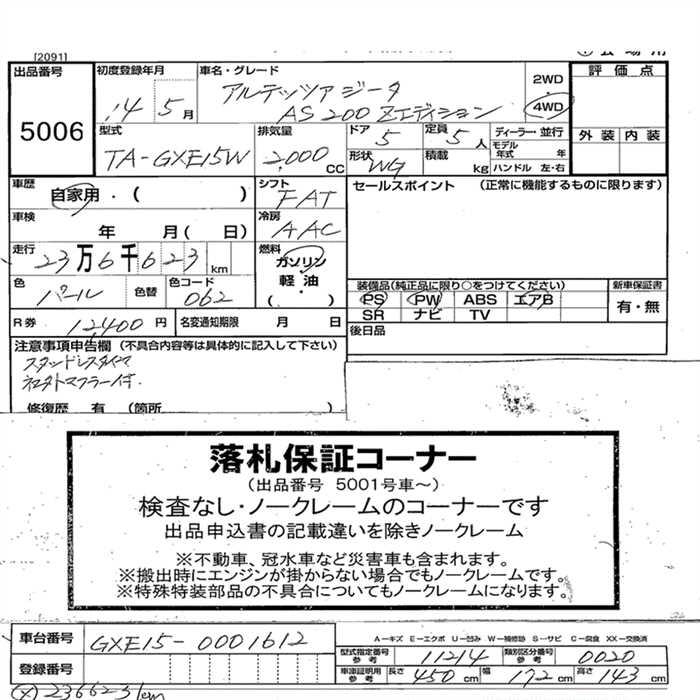 [2091]
出品番号 5006
初度登録年月 14 5月
車名・グレード アルテッツァジータ AS200 Zエディション
2WD
4WD
評価点
外装 内装
型式 TA-GXE15W
排気量 2,000 CC
ドア 5
定員 5人
形状 WG
積載 kg
ディーラー・並行
モデル年式 年
ハンドル 左・右
車歴 自家用・( )
シフト FAT
セールスポイント (正常に機能するものに限ります)
車検 年 月(日)
冷房 AAC
走行 23万6千623km
燃料 ガソリン・軽油 ( . )
色 パール 色替
色コード 062
装備品(純正品に限り○をつけてください)
PS PW ABS エアB
SR ナビ TV
新車保証書 有・無
R券 12,400円
名変通知期限 月 日
後日品
注意事項申告欄 (不具合内容等は具体的に記入して下さい)
スタッドレスタイヤ
修復歴 有 (箇所 )
落札保証コーナー
(出品番号 5001号車~)
検査なし・ノークレームのコーナーです
出品申込書の記載違いを除きノークレーム
※不動車、冠水車など災害車も含まれます。
※搬出時にエンジンが掛からない場合でもノークレームです。
※特殊特装部品の不具合についてもノークレームになります。
車台番号 GXE15-0001612
A-キズ E-エクボ U-凹み W-補修跡 S-サビ C-腐食 XX-交換済
型式指定番号 参考 11214
類別区分番号 参考 0020
登録番号
車庫証明用 参考 長さ 450cm 幅 172cm 高さ 143cm
236623km